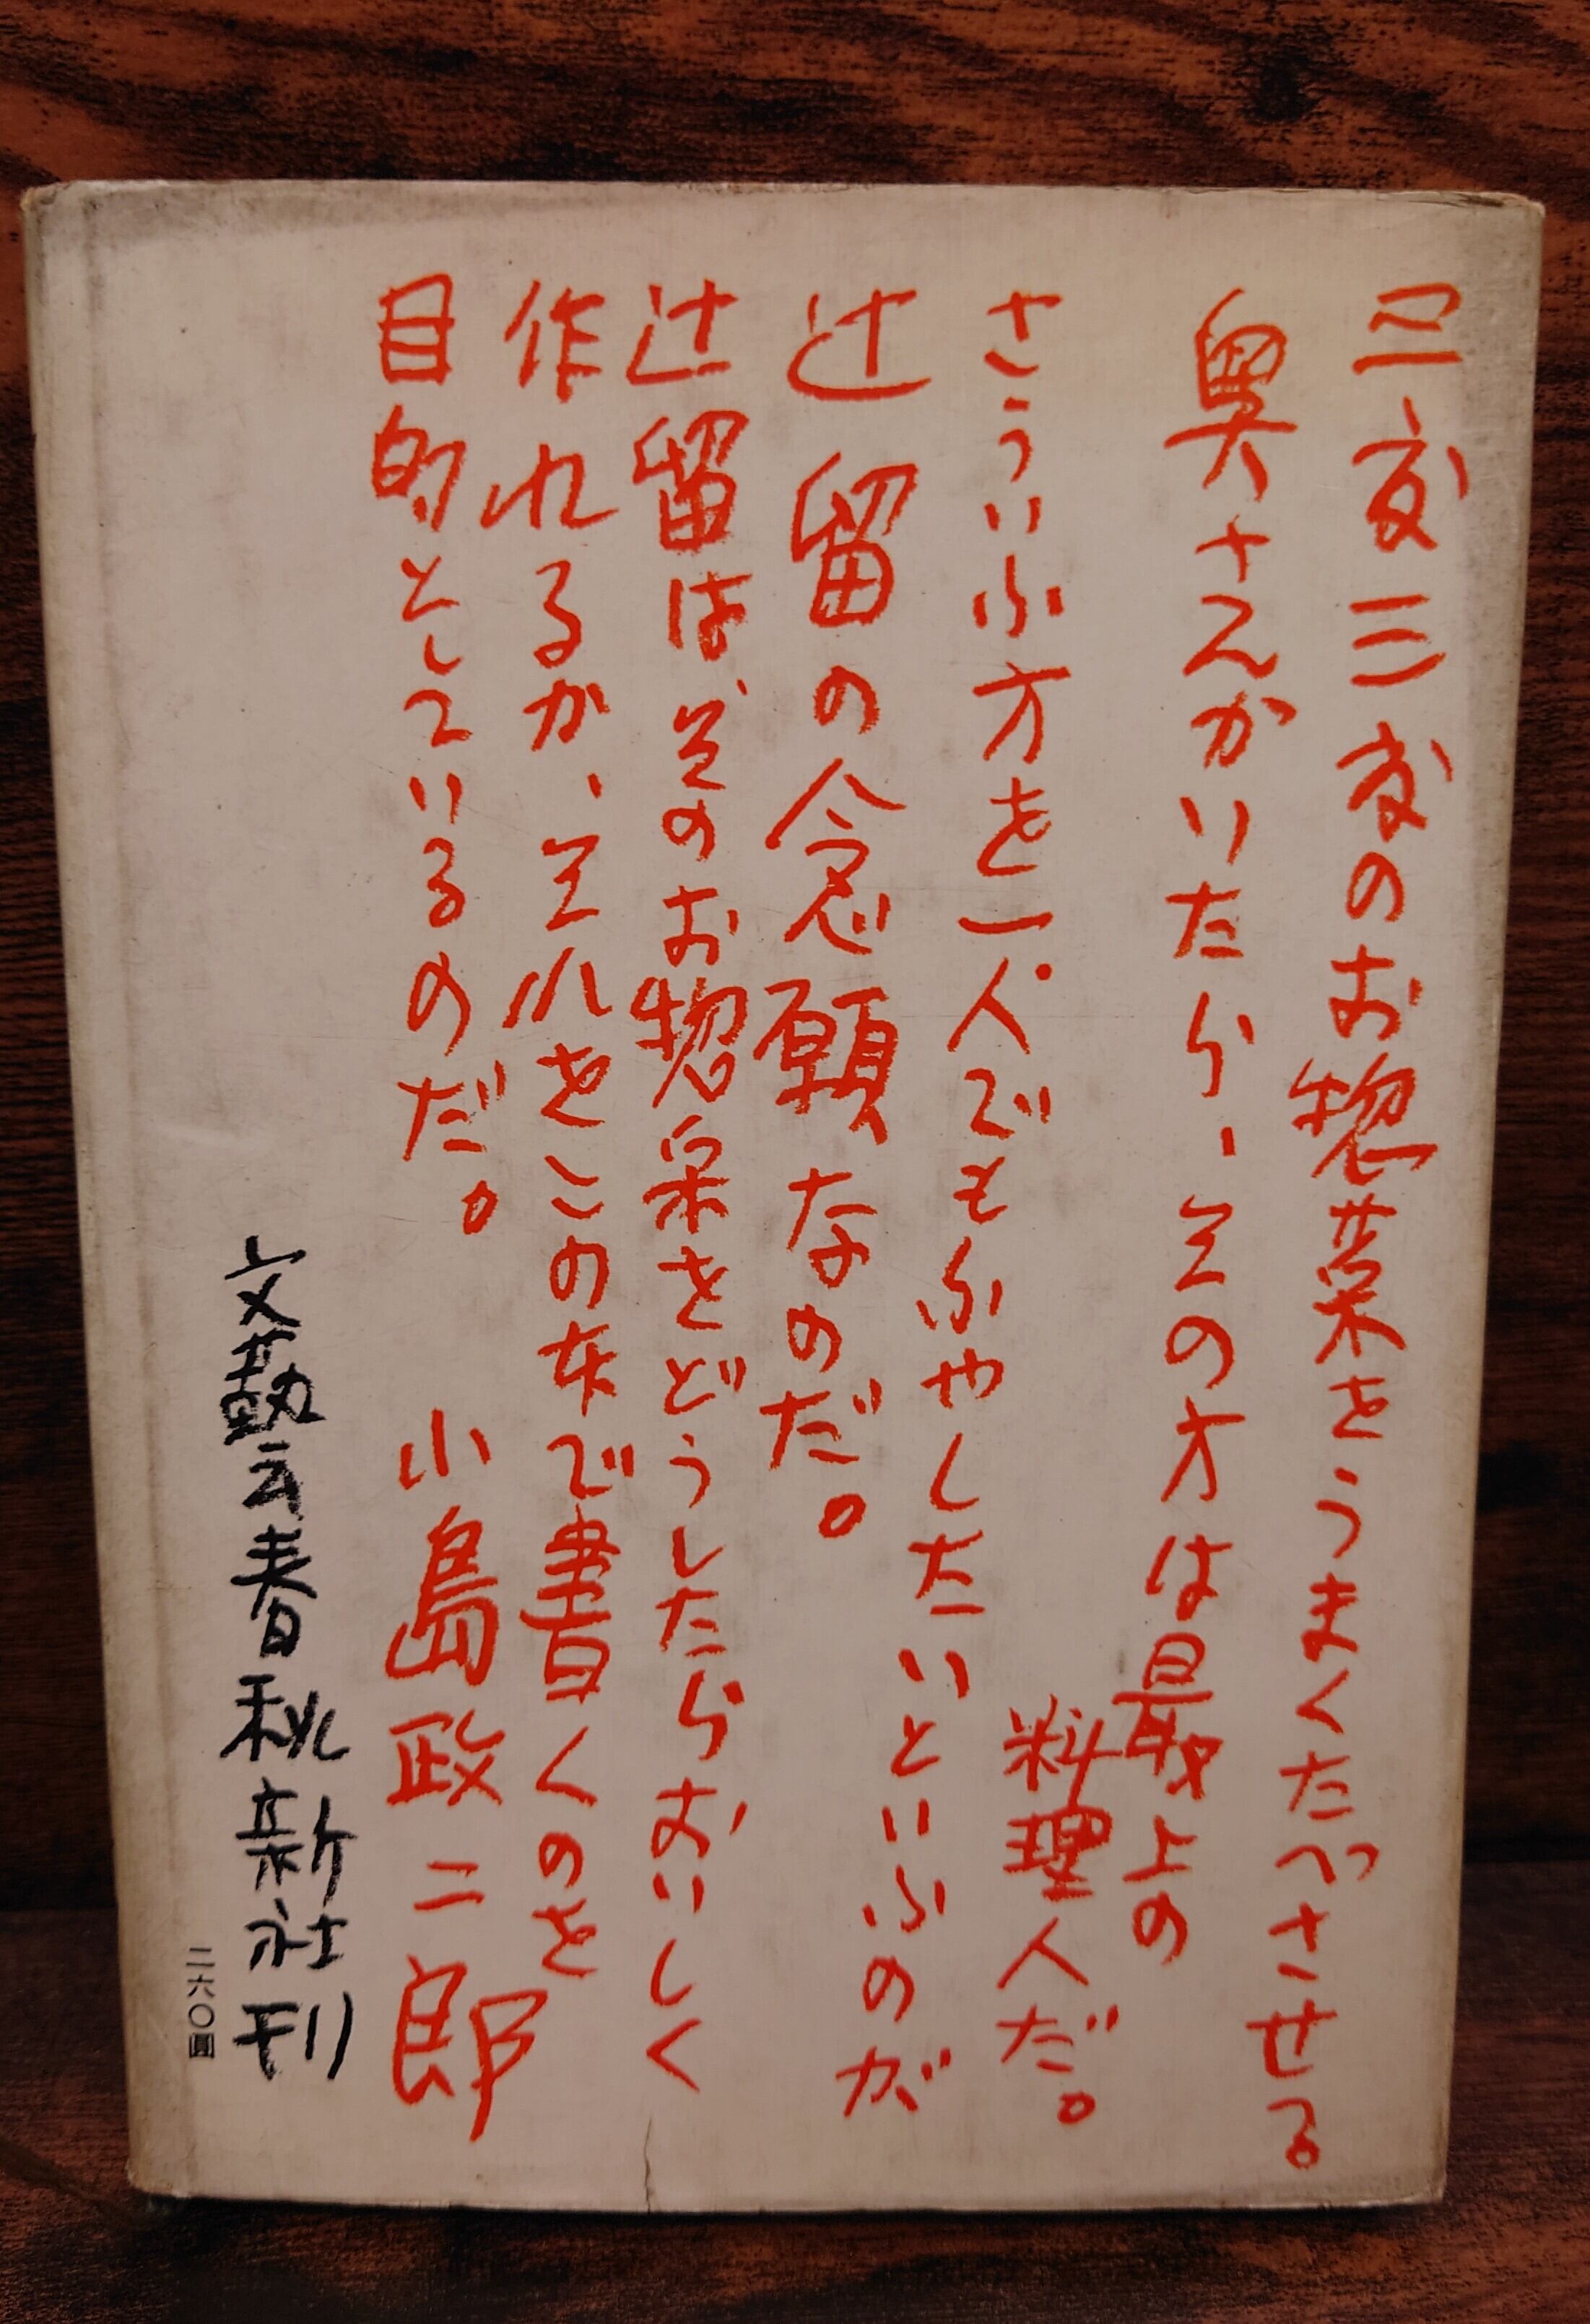 三度三度のお惣菜をうまくたべさせる
奥さんがいたら、その方は最上の
料理人だ。
さういふ方を一人でもふやしたいといふのが
辻留の念願なのだ。
辻留は、そのお惣菜をどうしたらおいしく
作れるか、それをこの本で書くのを
目的としているのだ。
小島政二郎
文藝春秋新社刊
二六〇圓